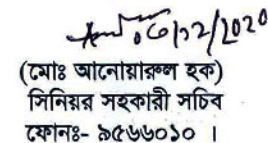 ০৬/১২/2020
(মোঃ আনোয়ারুল হক)
সিনিয়র সহকারী সচিব
ফোনঃ- ৯৫৬৬০১০ ।